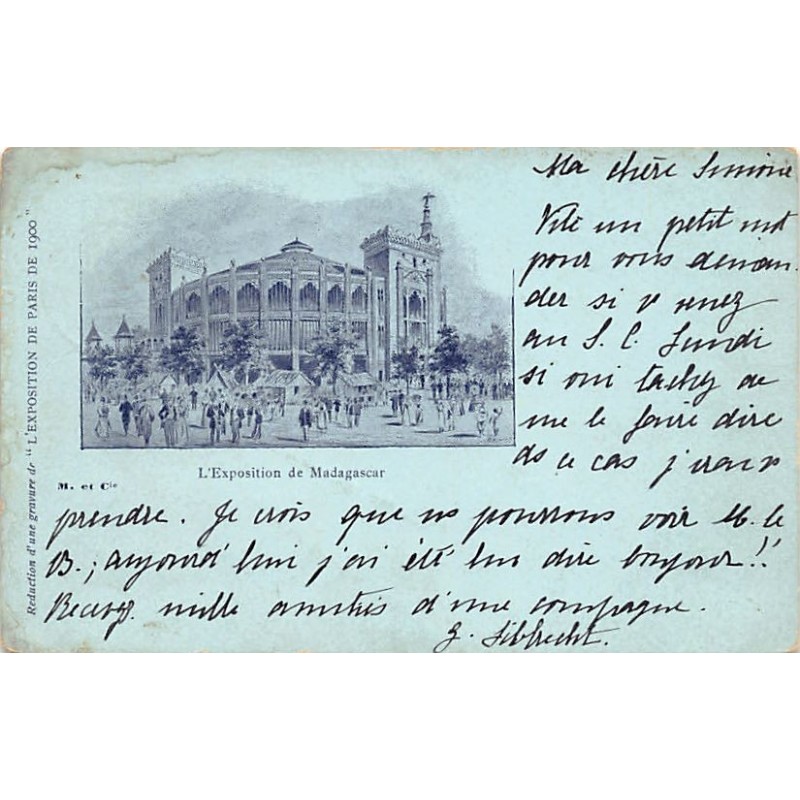 Ma chère Simone
Vite un petit mot
pour vous deman-
der si v venez
au S. C. Lundi
si oui tachez de
me le faire dire
ds ce cas j'irais vs
prendre. Je crois que ns pourrons voir M. le
B.; aujourd'hui j'ai été lui dire bonjour!!
Recevez mille amitiés d'une compagne.
L'Exposition de Madagascar
M. et Cie
Reduction d'une gravure de "L'EXPOSITION DE PARIS DE 1900"